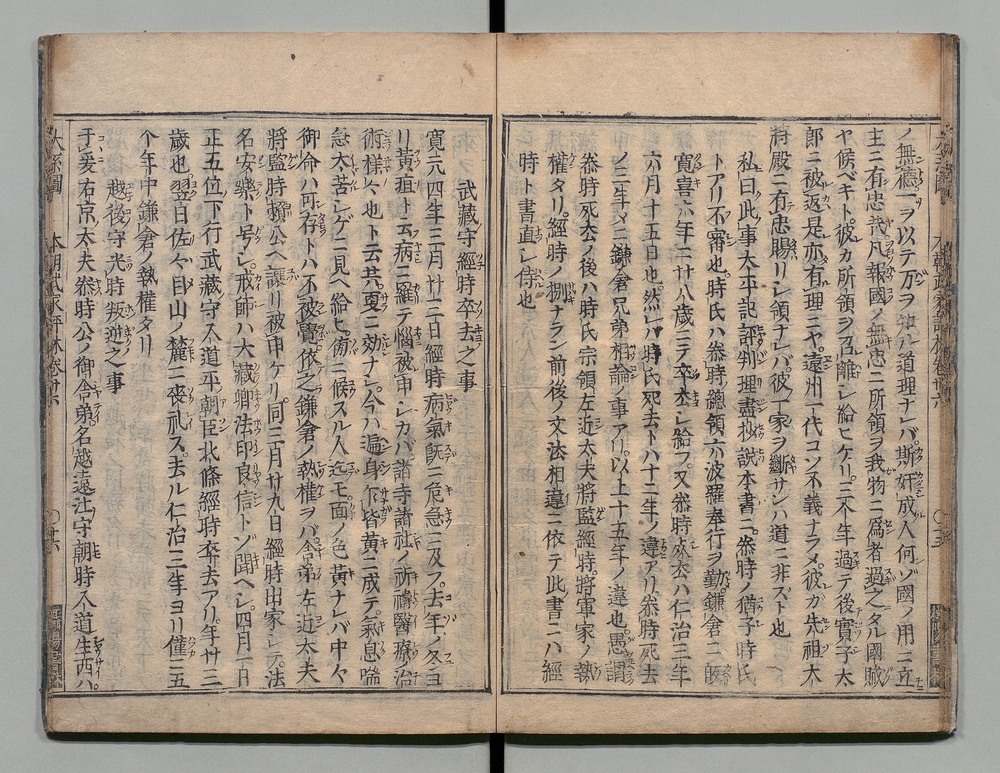 ノ無德一ヲ以テ万ヲ知ル道理ナレバ斯奸成人何ゾ國ノ用ニ立
主ニ有忠哉凡報國ノ無忠ニ所領ヲ我物ニ爲者過之タル國賊
ヤ候ベキト彼カ所領ヲ召離シ給ヒケリ二今年過テ後實子太
郎ニ被返是亦有理ニヤ遠州一代コソ不義ナラメ彼カ先祖木
殿ニ有忠賜リシ領ナレバ彼一家ヲ斷サンハ道ニ非ズト也
私曰此事太平記評判理盡抄説本書ニ泰時ノ猶子時氏
トアリ不審也時氏ハ泰時總領六波羅奉行ヲ勤鎌倉ニ皈
寛喜六年二廿八歳ニテ卒去シ給フ又泰時卒去ハ仁治三年
六月十五日也然レバ時氏死去トハ十二年ノ違アリ泰時死去
ノ三年メニ鎌倉兄弟相論ノ事アリ以上十五年ノ違也愚謂
泰時死去ノ後ハ時氏宗領左近太夫將監經時將軍家ノ執
權タリ經時ノ捌ナラン前後ノ文法相違ニ依テ此書ニハ經
時ト書直シ侍也
武藏守經時卒去之事
寛元四年三月廿二日經時病氣既ニ危急ニ及フ去年ノ冬ヨ
リ黃疸ト云病ニ羅テ惱被申シカバ諸寺諸社ノ祈禱醫療治
術樣々也ト云共更ニ効ナシ今ハ遍身下皆黃ニ成テ氣息喘
急大苦シゲニ見ヘ給ヒ術ニ候スル人迄モ面ノ色黃ナレバ中々
御命ハ可存トハ不被覺依之鎌倉ノ執權ヲバ舍弟左近太夫
將監時賴公ヘ讓リ被申ケリ同三月廿九日經時出家シテ法
名安樂ト号シ戒師ハ大藏卿法印良信トゾ聞ヘシ四月一日
正五位下行武藏守入道平朝臣北條經時卒去アリ年廿三
歳也翌日佐々目山ノ麓ニ喪礼ス去ル仁治三年ヨリ僅ニ五
个年中鎌倉ノ執權タリ
越後守光時叛逆之事
于爰右京太夫泰時公ノ御舍弟名越遠江守朝時入道生西ハ